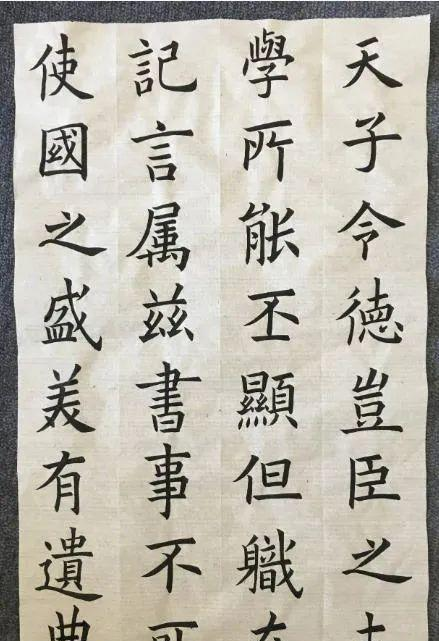 天子令德豈臣之
學所能丕顯但職
記言属茲書事不
使國之盛美有遺